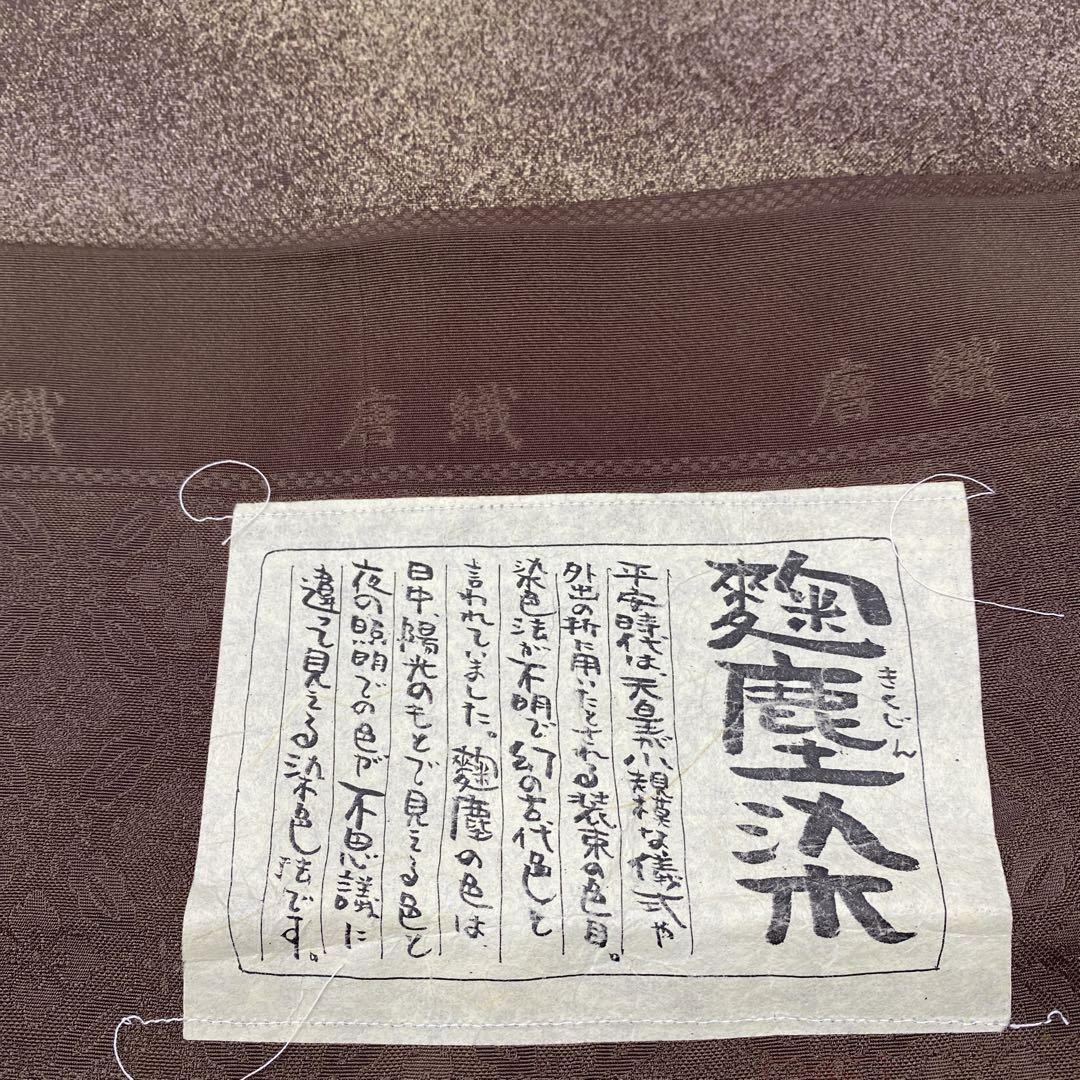 織
唐織
唐織
麴塵染
きくじん
平安時代は、天皇が小規模な儀式や
外出の折に用いたとされる装束の色目。
染色法が不明で幻の古代色と
言われていました。麴塵の色は、
日中、陽光のもとで見える色と
夜の照明での色が不思議に
違って見える染色法です。